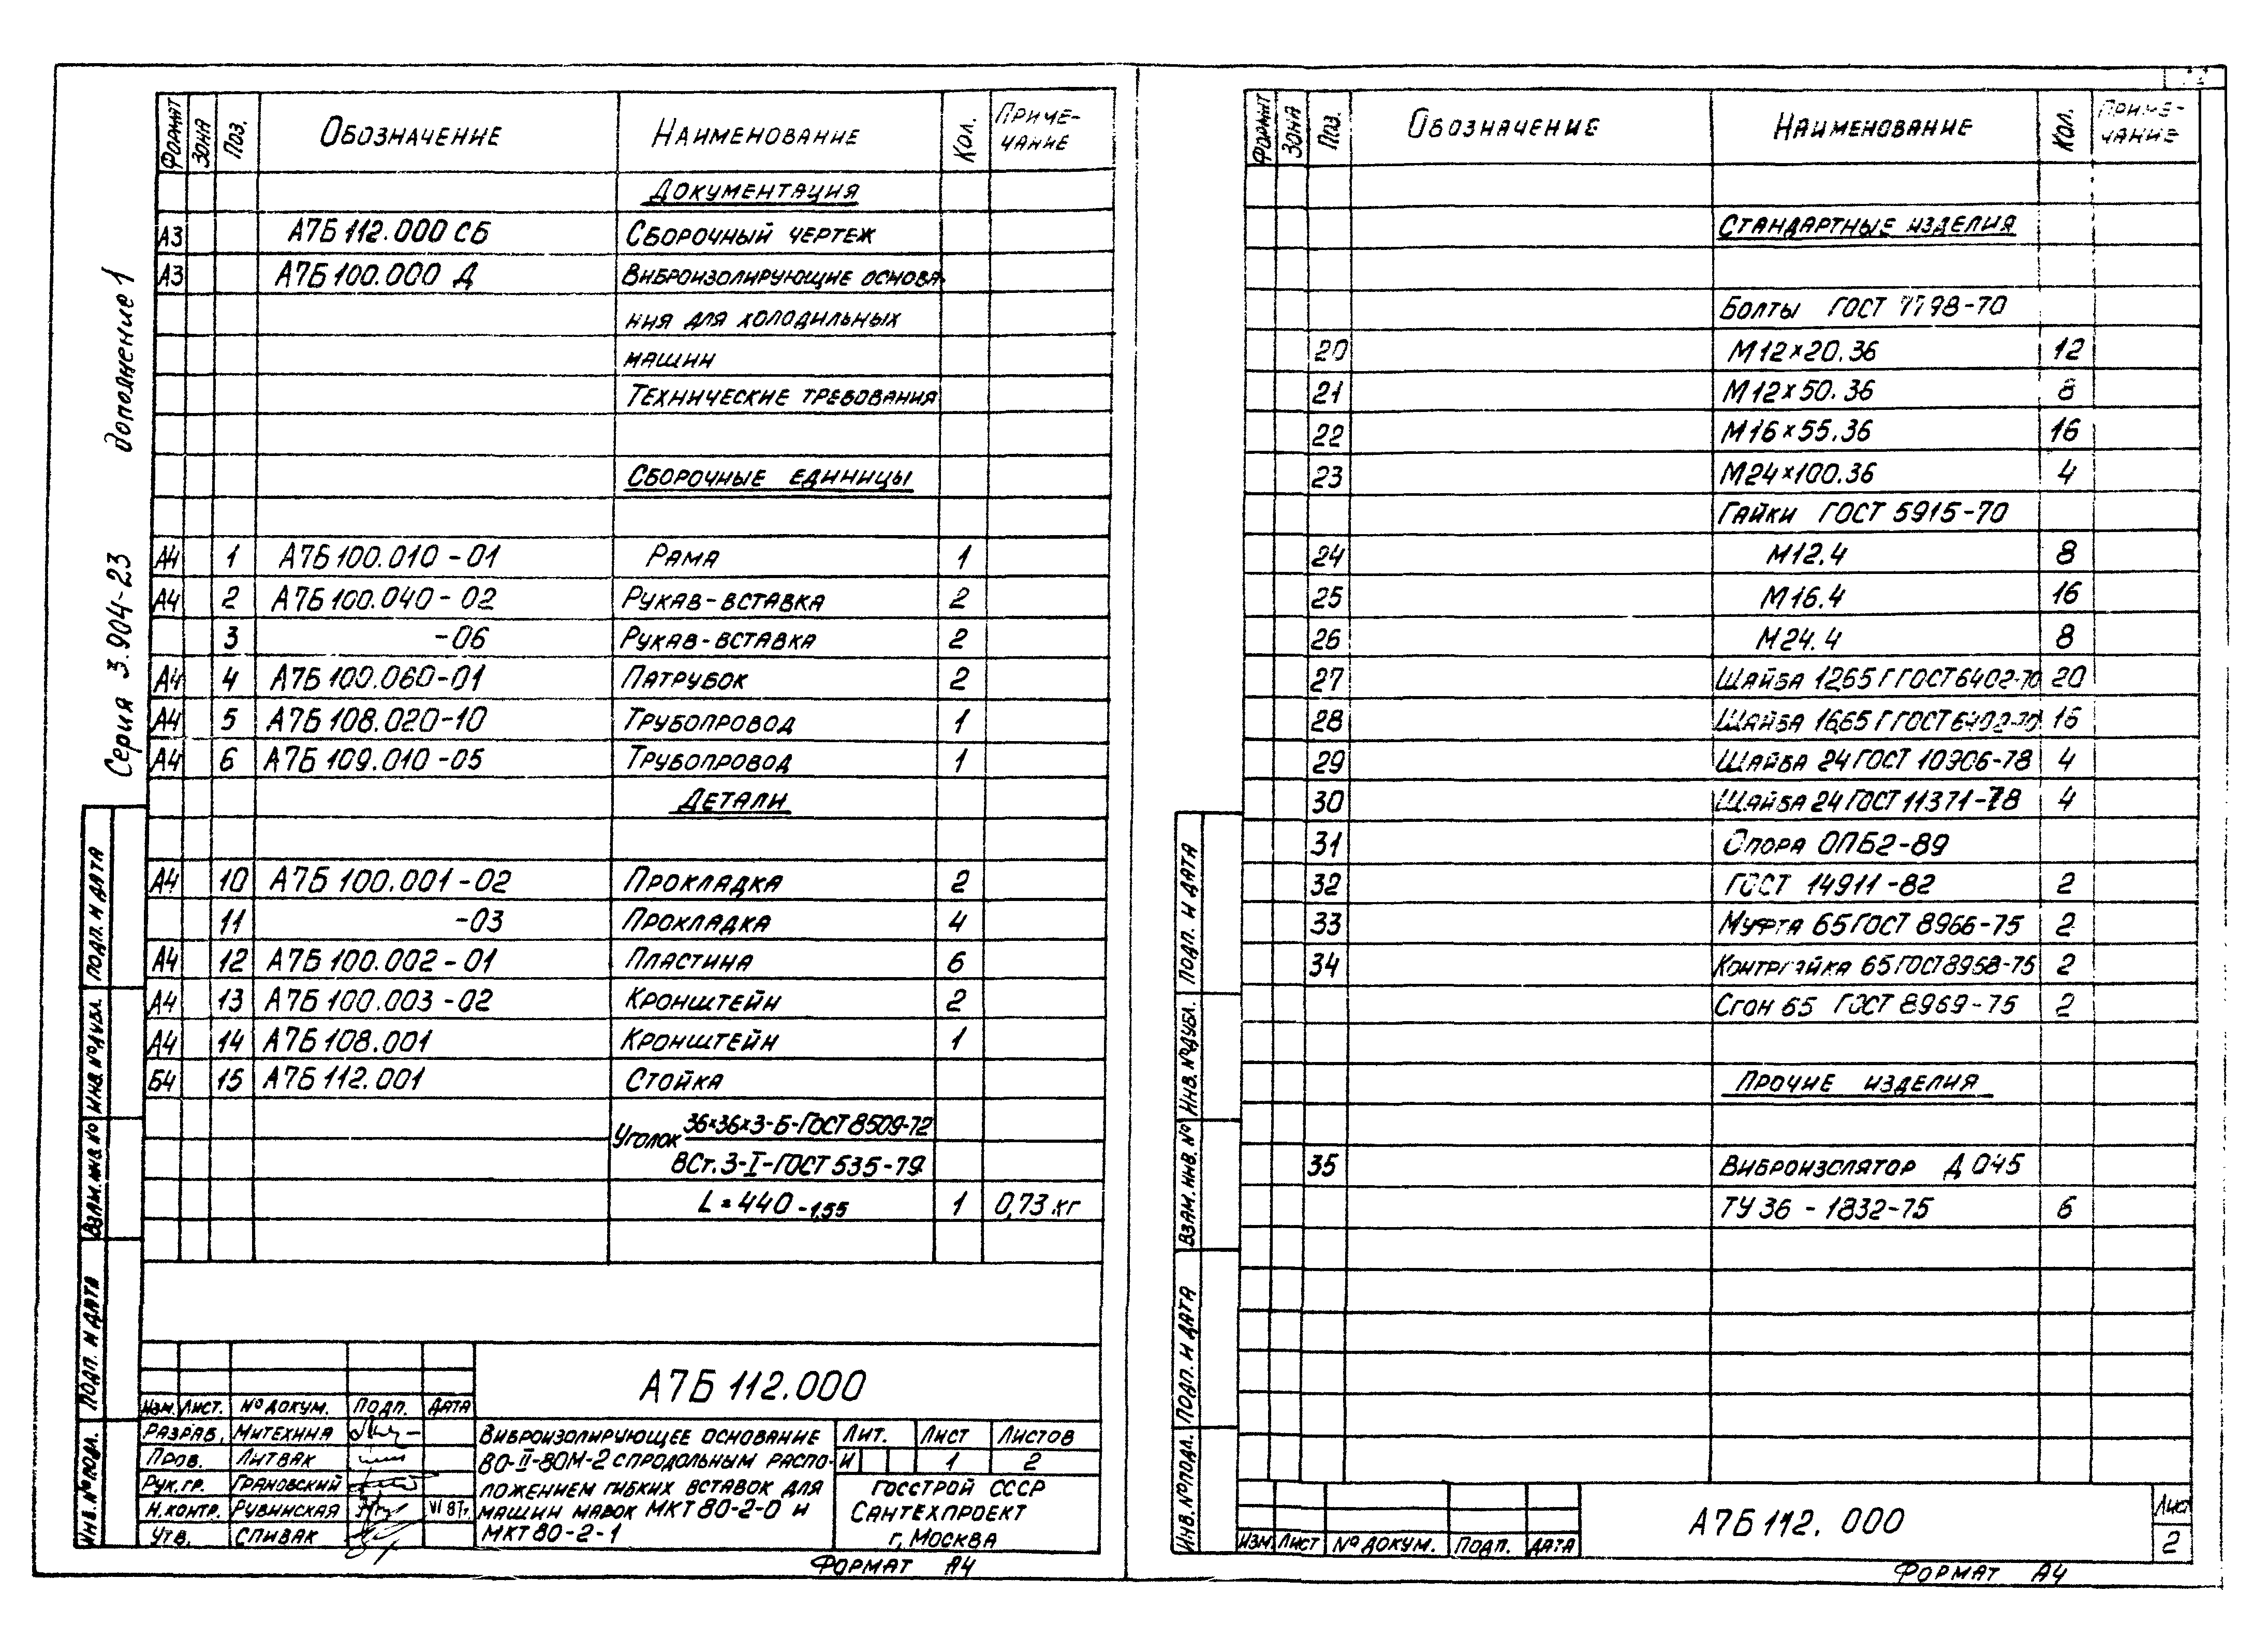 Серия 3.904-23 дополнение 1
Формат Зона Поз. Обозначение Наименование Кол. Примечание
Документация
А3 А7Б 112.000 СБ Сборочный чертеж
А3 А7Б 100.000 Д Виброизолирующие основа-
ния для холодильных
машин
Технические требования
Сборочные единицы
А4 1 А7Б 100.010-01 Рама 1
А4 2 А7Б 100.040-02 Рукав-вставка 2
3 -06 Рукав-вставка 2
А4 4 А7Б 100.060-01 Патрубок 2
А4 5 А7Б 108.020-10 Трубопровод 1
А4 6 А7Б 109.010-05 Трубопровод 1
Детали
А4 10 А7Б 100.001-02 Прокладка 2
11 -03 Прокладка 4
А4 12 А7Б 100.002-01 Пластина 6
А4 13 А7Б 100.003-02 Кронштейн 2
А4 14 А7Б 108.001 Кронштейн 1
Б4 15 А7Б 112.001 Стойка
Уголок 36×36×3-Б-ГОСТ 8509-72
ВСт.3-I-ГОСТ 535-79
L=440-1,55 1 0,73 кг
Подп. и дата
Инв. № дубл.
Взам. инв. №
Подп. и дата
Инв. № подл.
А7Б 112.000
Изм. Лист. № докум. Подп. Дата
Разраб. Митехина
Пров. Литвак
Рук. гр. Грановский
Н. контр. Рубинская VI 87г.
Утв. Спивак
Виброизолирующее основание
80-II-80М-2 с продольным распо-
ложением гибких вставок для
машин марок МКТ 80-2-0 и
МКТ 80-2-1
Лит. Лист Листов
И 1 2
Госстрой СССР
Сантехпроект
г. Москва
Формат А4
Формат Зона Поз. Обозначение Наименование Кол. Примечание
Стандартные изделия
Болты ГОСТ 7798-70
20 М12×20.36 12
21 М12×50.36 8
22 М16×55.36 16
23 М24×100.36 4
Гайки ГОСТ 5915-70
24 М12.4 8
25 М16.4 16
26 М24.4 8
27 Шайба 1265Г ГОСТ 6402-70 20
28 Шайба 1665Г ГОСТ 6402-70 16
29 Шайба 24 ГОСТ 10906-78 4
30 Шайба 24 ГОСТ 11371-78 4
31 Опора ОПБ2-89
32 ГОСТ 14911-82 2
33 Муфта 65 ГОСТ 8966-75 2
34 Контргайка 65 ГОСТ 8968-75 2
Сгон 65 ГОСТ 8969-75 2
Прочие изделия
35 Виброизолятор Д 045
ТУ 36-1832-75 6
Подп. и дата
Инв. № дубл.
Взам. инв. №
Подп. и дата
Инв. № подл.
Изм. Лист № докум. Подп. Дата
А7Б 112.000
Лист
2
Формат А4